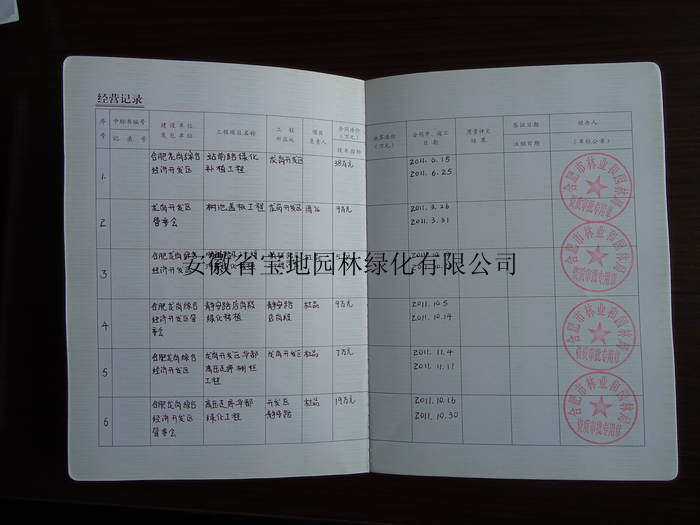 经营记录
序号 中标书编号 记录号 建设单位 发包单位 工程项目名称 工程所在地 项目负责人 合同造价(万元) 技术指标 决算造价(万元) 合同开、竣工日期 质量评定结果 签证日期 注销日期 经办人 (单位公章)
1. 合肥龙岗综合经济开发区 站前路绿化补植工程 龙岗开发区 38万元 2011.6.15 2011.6.25
2 龙岗开发区管委会 树池盖板工程 龙岗开发区 9万元 2011.3.26 2011.3.31
3 合肥龙岗综合经济开发区
安徽省宝地园林绿化有限公司
4 合肥龙岗综合经济开发区管委会 杜品 9万元 2011.10.5 2011.10.14
5 合肥龙岗综合经济开发区 龙岗开发区 杜品 7万元 2011.11.4 2011.11.11
6 合肥龙岗综合经济开发区管委会 绿化工程 开发区 杜品 19万元 2011.10.16 2011.10.30
合肥市林业和园林局
资质审批专用章
合肥市林业和园林局
资质审批专用章
合肥市林业和园林局
资质审批专用章
合肥市林业和园林局
资质审批专用章